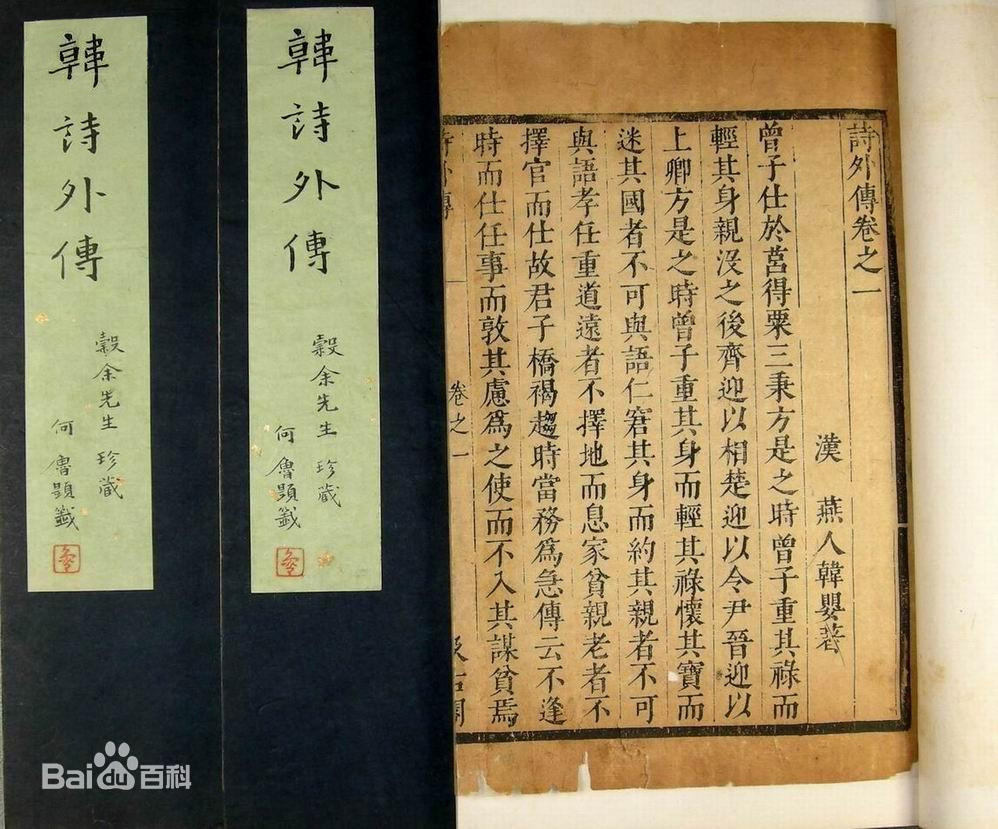 韓詩外傳
穀余先生 珍藏
何魯題籤
韓詩外傳
穀余先生 珍藏
何魯題籤
詩外傳卷之一
漢 燕人韓嬰著
曾子仕於莒得粟三秉方是之時曾子重其祿而
輕其身親沒之後齊迎以相楚迎以令尹晉迎以
上卿方是之時曾子重其身而輕其祿懷其寶而
迷其國者不可與語仁窘其身而約其親者不可
與語孝任重道遠者不擇地而息家貧親老者不
擇官而仕故君子橋褐趨時當務爲急傳云不逢
時而仕任事而敦其慮爲之使而不入其謀貧焉
卷之一
Bai du 百科